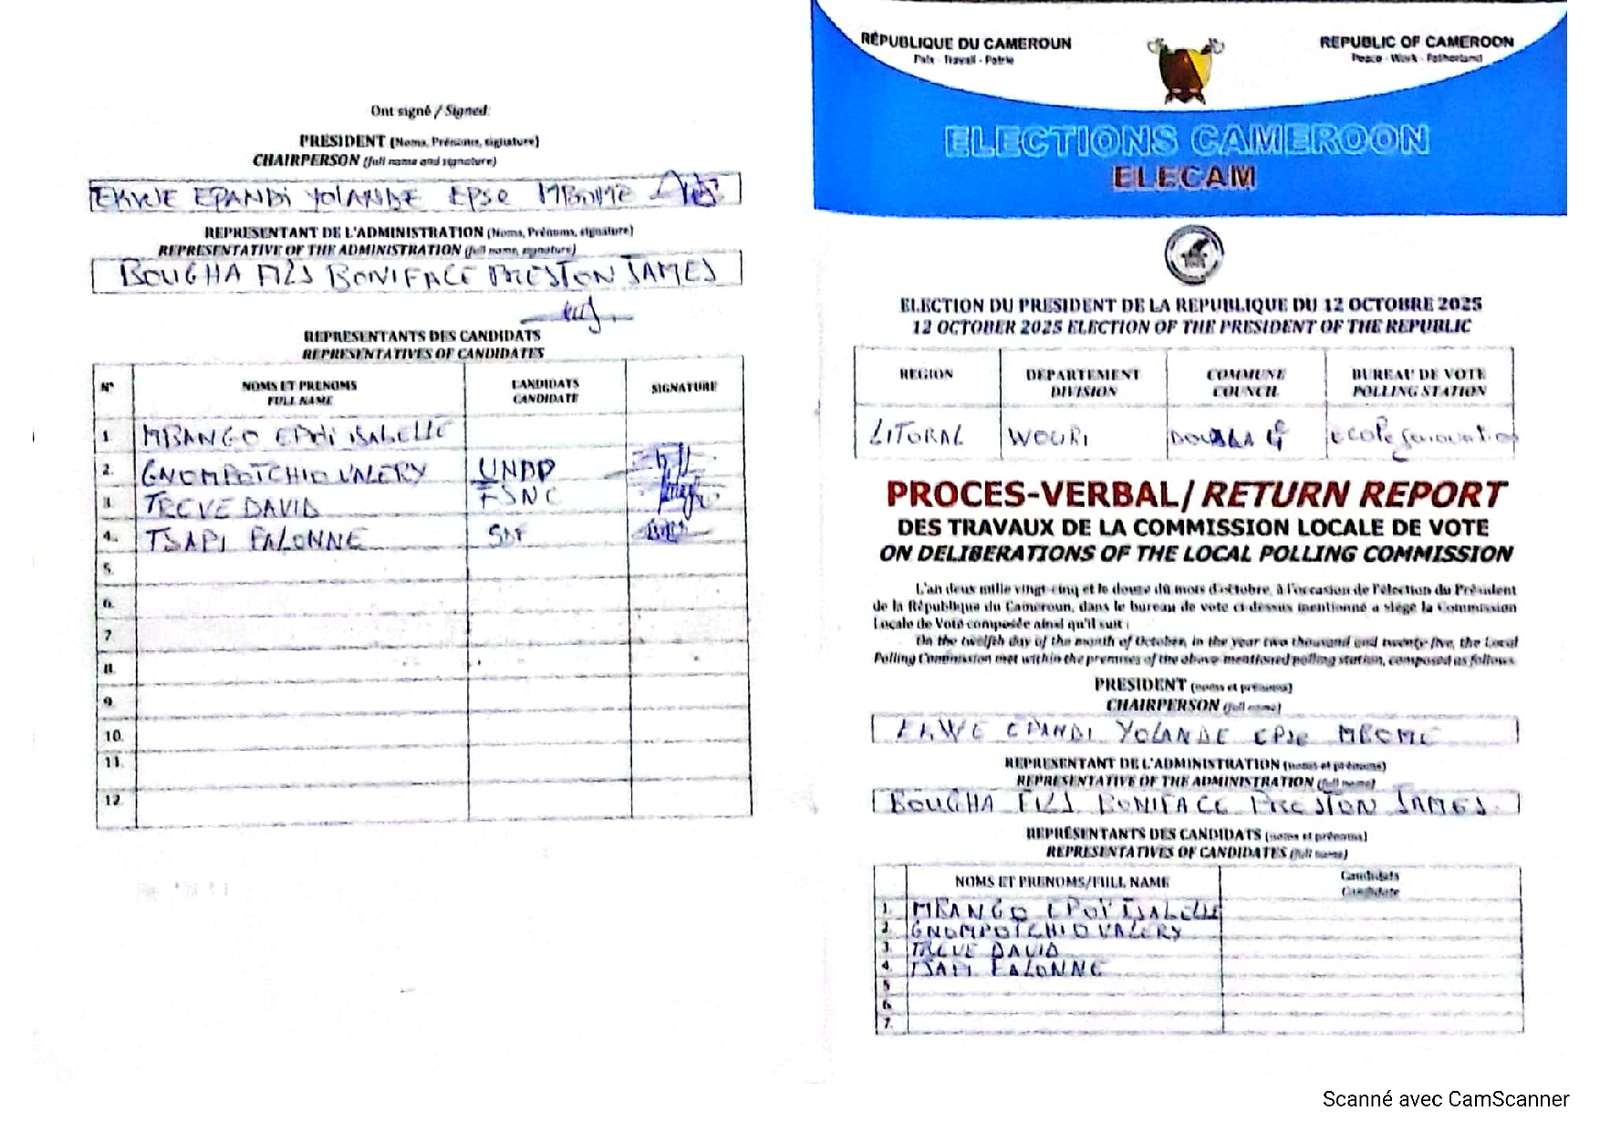 Ont signé / Signed:
PRESIDENT (Noms, Prénoms, signature)
CHAIRPERSON (full name and signature)
EKWE EPANDI YOLANDE EPSE MBOME
REPRESENTANT DE L'ADMINISTRATION (Noms, Prénoms, signature)
REPRESENTATIVE OF THE ADMINISTRATION (full name, signature)
BOUGHA FILS BONIFACE PRESTON JAMES
REPRESENTANTS DES CANDIDATS
REPRESENTATIVES OF CANDIDATES
N° NOMS ET PRENOMS FULL NAME CANDIDATS CANDIDATE SIGNATURE
1. MBANGO EPOÏ ISABELLE
2. GNOMPOTCHIO VALERY UNDP
3. TREVE DAVID FSNC
4. TSAPI FALONNE SDF
5.
6.
7.
8.
9.
10.
11.
12.
RÉPUBLIQUE DU CAMEROUN
Paix - Travail - Patrie
REPUBLIC OF CAMEROON
Peace - Work - Fatherland
ELECTIONS CAMEROON
ELECAM
ELECTION DU PRESIDENT DE LA REPUBLIQUE DU 12 OCTOBRE 2025
12 OCTOBER 2025 ELECTION OF THE PRESIDENT OF THE REPUBLIC
REGION DEPARTEMENT DIVISION COMMUNE COUNCIL BUREAU DE VOTE POLLING STATION
LITORAL WOURI DOUALA 4e ECOLE
PROCES-VERBAL/ RETURN REPORT
DES TRAVAUX DE LA COMMISSION LOCALE DE VOTE
ON DELIBERATIONS OF THE LOCAL POLLING COMMISSION
L'an deux mille vingt-cinq et le douze du mois d'octobre, à l'occasion de l'élection du Président
de la République du Cameroun, dans le bureau de vote ci-dessus mentionné a siégé la Commission
Locale de Vote composée ainsi qu'il suit :
On the twelfth day of the month of October, in the year two thousand and twenty five, the Local
Polling Commission met within the premises of the above-mentioned polling station, composed as follows
PRESIDENT (noms et prénoms)
CHAIRPERSON (full name)
EKWE EPANDI YOLANDE EPSE MBOME
REPRESENTANT DE L'ADMINISTRATION (noms et prénoms)
REPRESENTATIVE OF THE ADMINISTRATION (full name)
BOUGHA FILS BONIFACE PRESTON JAMES
REPRÉSENTANTS DES CANDIDATS (noms et prénoms)
REPRESENTATIVES OF CANDIDATES (full name)
NOMS ET PRENOMS/FULL NAME Candidats Candidate
1. MBANGO EPOÏ ISABELLE
2. GNOMPOTCHIO VALERY
3. TREVE DAVID
4. TSAPI FALONNE
5
6.
7.
Scanné avec CamScanner